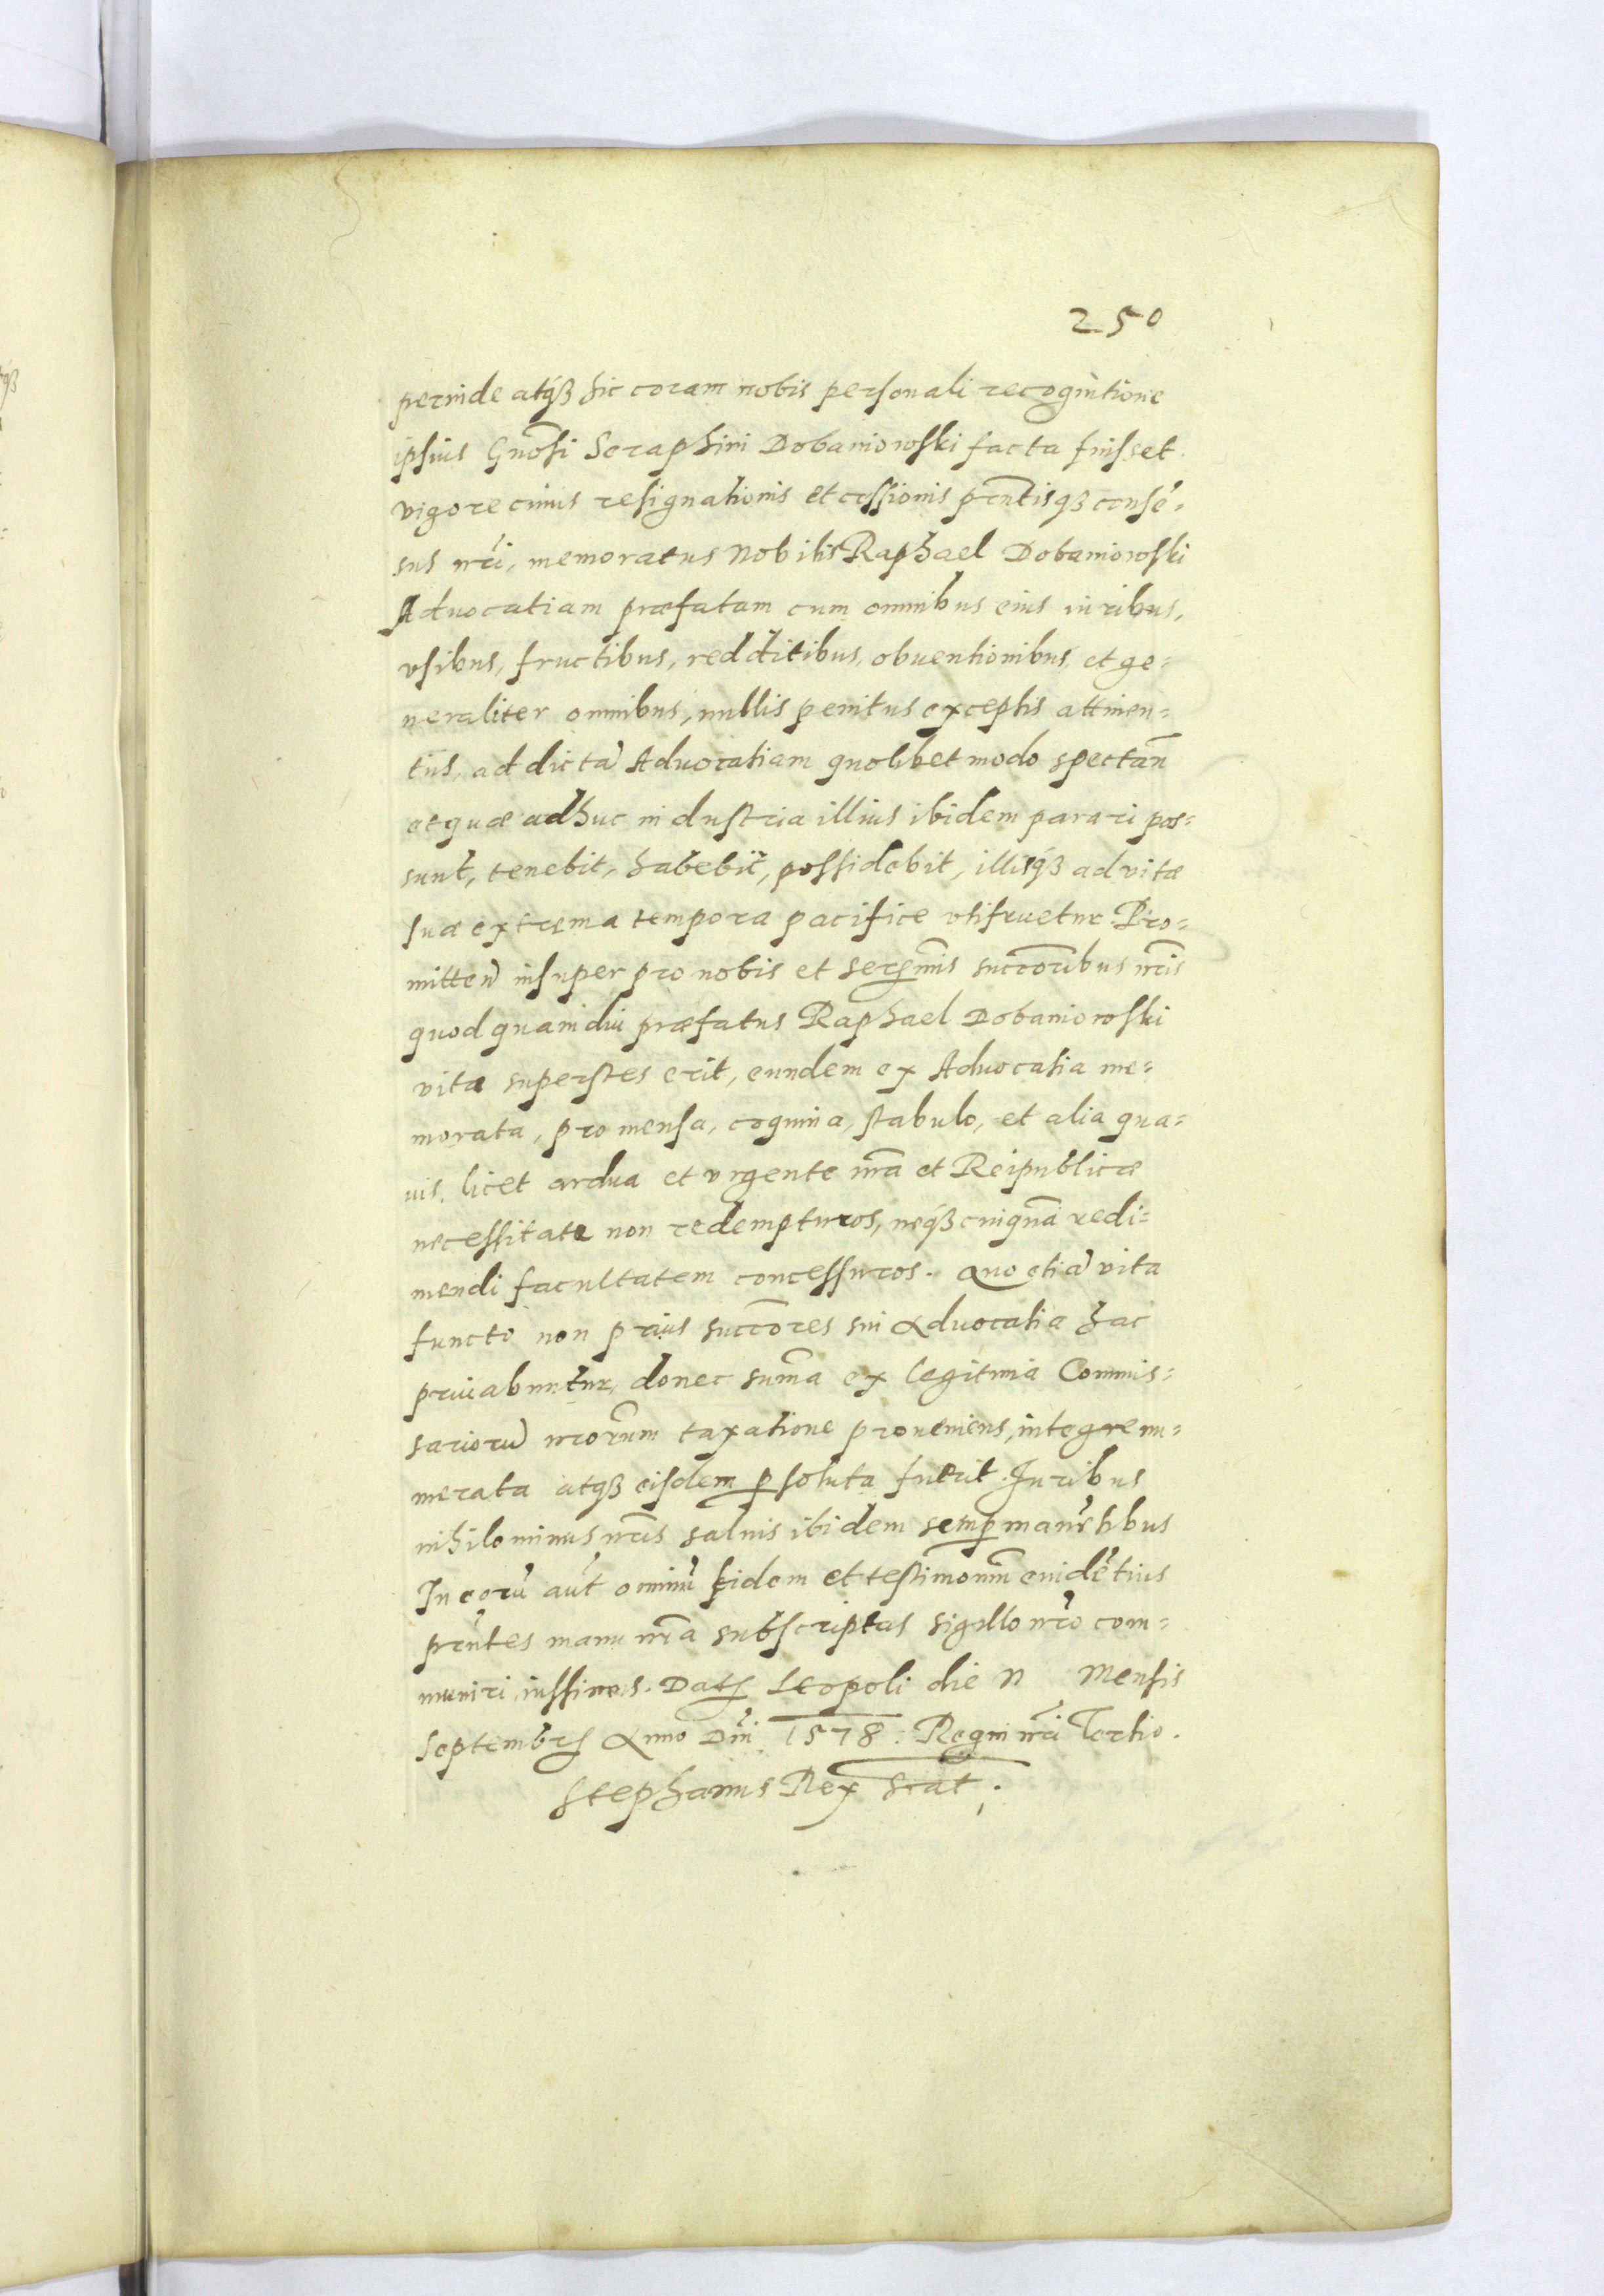 250
perinde atq3 hic coram nobis personali recognitione
ipsius Gnōsi Seraphini Dobaniowski facta fuisset.
vigore cuius resignationis et cessionis pr̃ntisq3 consẽ-
sus nr̃i, memoratus Nobilis Raphael Dobaniowski
Aduocatiam præfatam cum omnibus eius iuribus,
vsibus, fructibus, redditibus, obuentionibus et ge-
neraliter omnibus, nullis penitus exceptis attinen-
tiis, ad dictã Aduocatiam quolibet modo spectañ
et quæ adhuc industria illius ibidem parari pos-
sunt, tenebit, habebit, possidebit, illisq3 ad vitæ
suæ extrema tempora pacifice vtifruetur. Pro-
mitteñ insuper pro nobis et Serẽnmis succoribus nr̃is
quod quamdiu præfatus Raphael Dobaniowski
vita superstes erit, eundem ex Aduocatia me-
morata, pro mensa, coquina, stabulo, et alia qua-
uis, licet ardua et vrgente nr̃a et Reipublicæ
necessitate non redempturos, neq3 cuiquã redi-
mendi facultatem concessuros. Quo etiã vita
functo non prius succores sui Aduocatia hac
priuabuntur, donec sum̃a ex legitima Commis-
sariorũ nr̃orum taxatione proueniens, integre nu-
merata atq3 eisdem psoluta fuerit. Iuribus
nihilominus nr̃is saluis ibidem semp manẽtibus
In eorũ aũt omniũ fidem et testimoniũ euidẽtius
pr̃ntes manu nr̃a subscriptas sigillo nr̃o com-
muniri iussimus. Dat Leopoli die N Mensis
Septembris Anno Dñi 1578. Regni nr̃i Tertio.
Stephanus Rex scat.